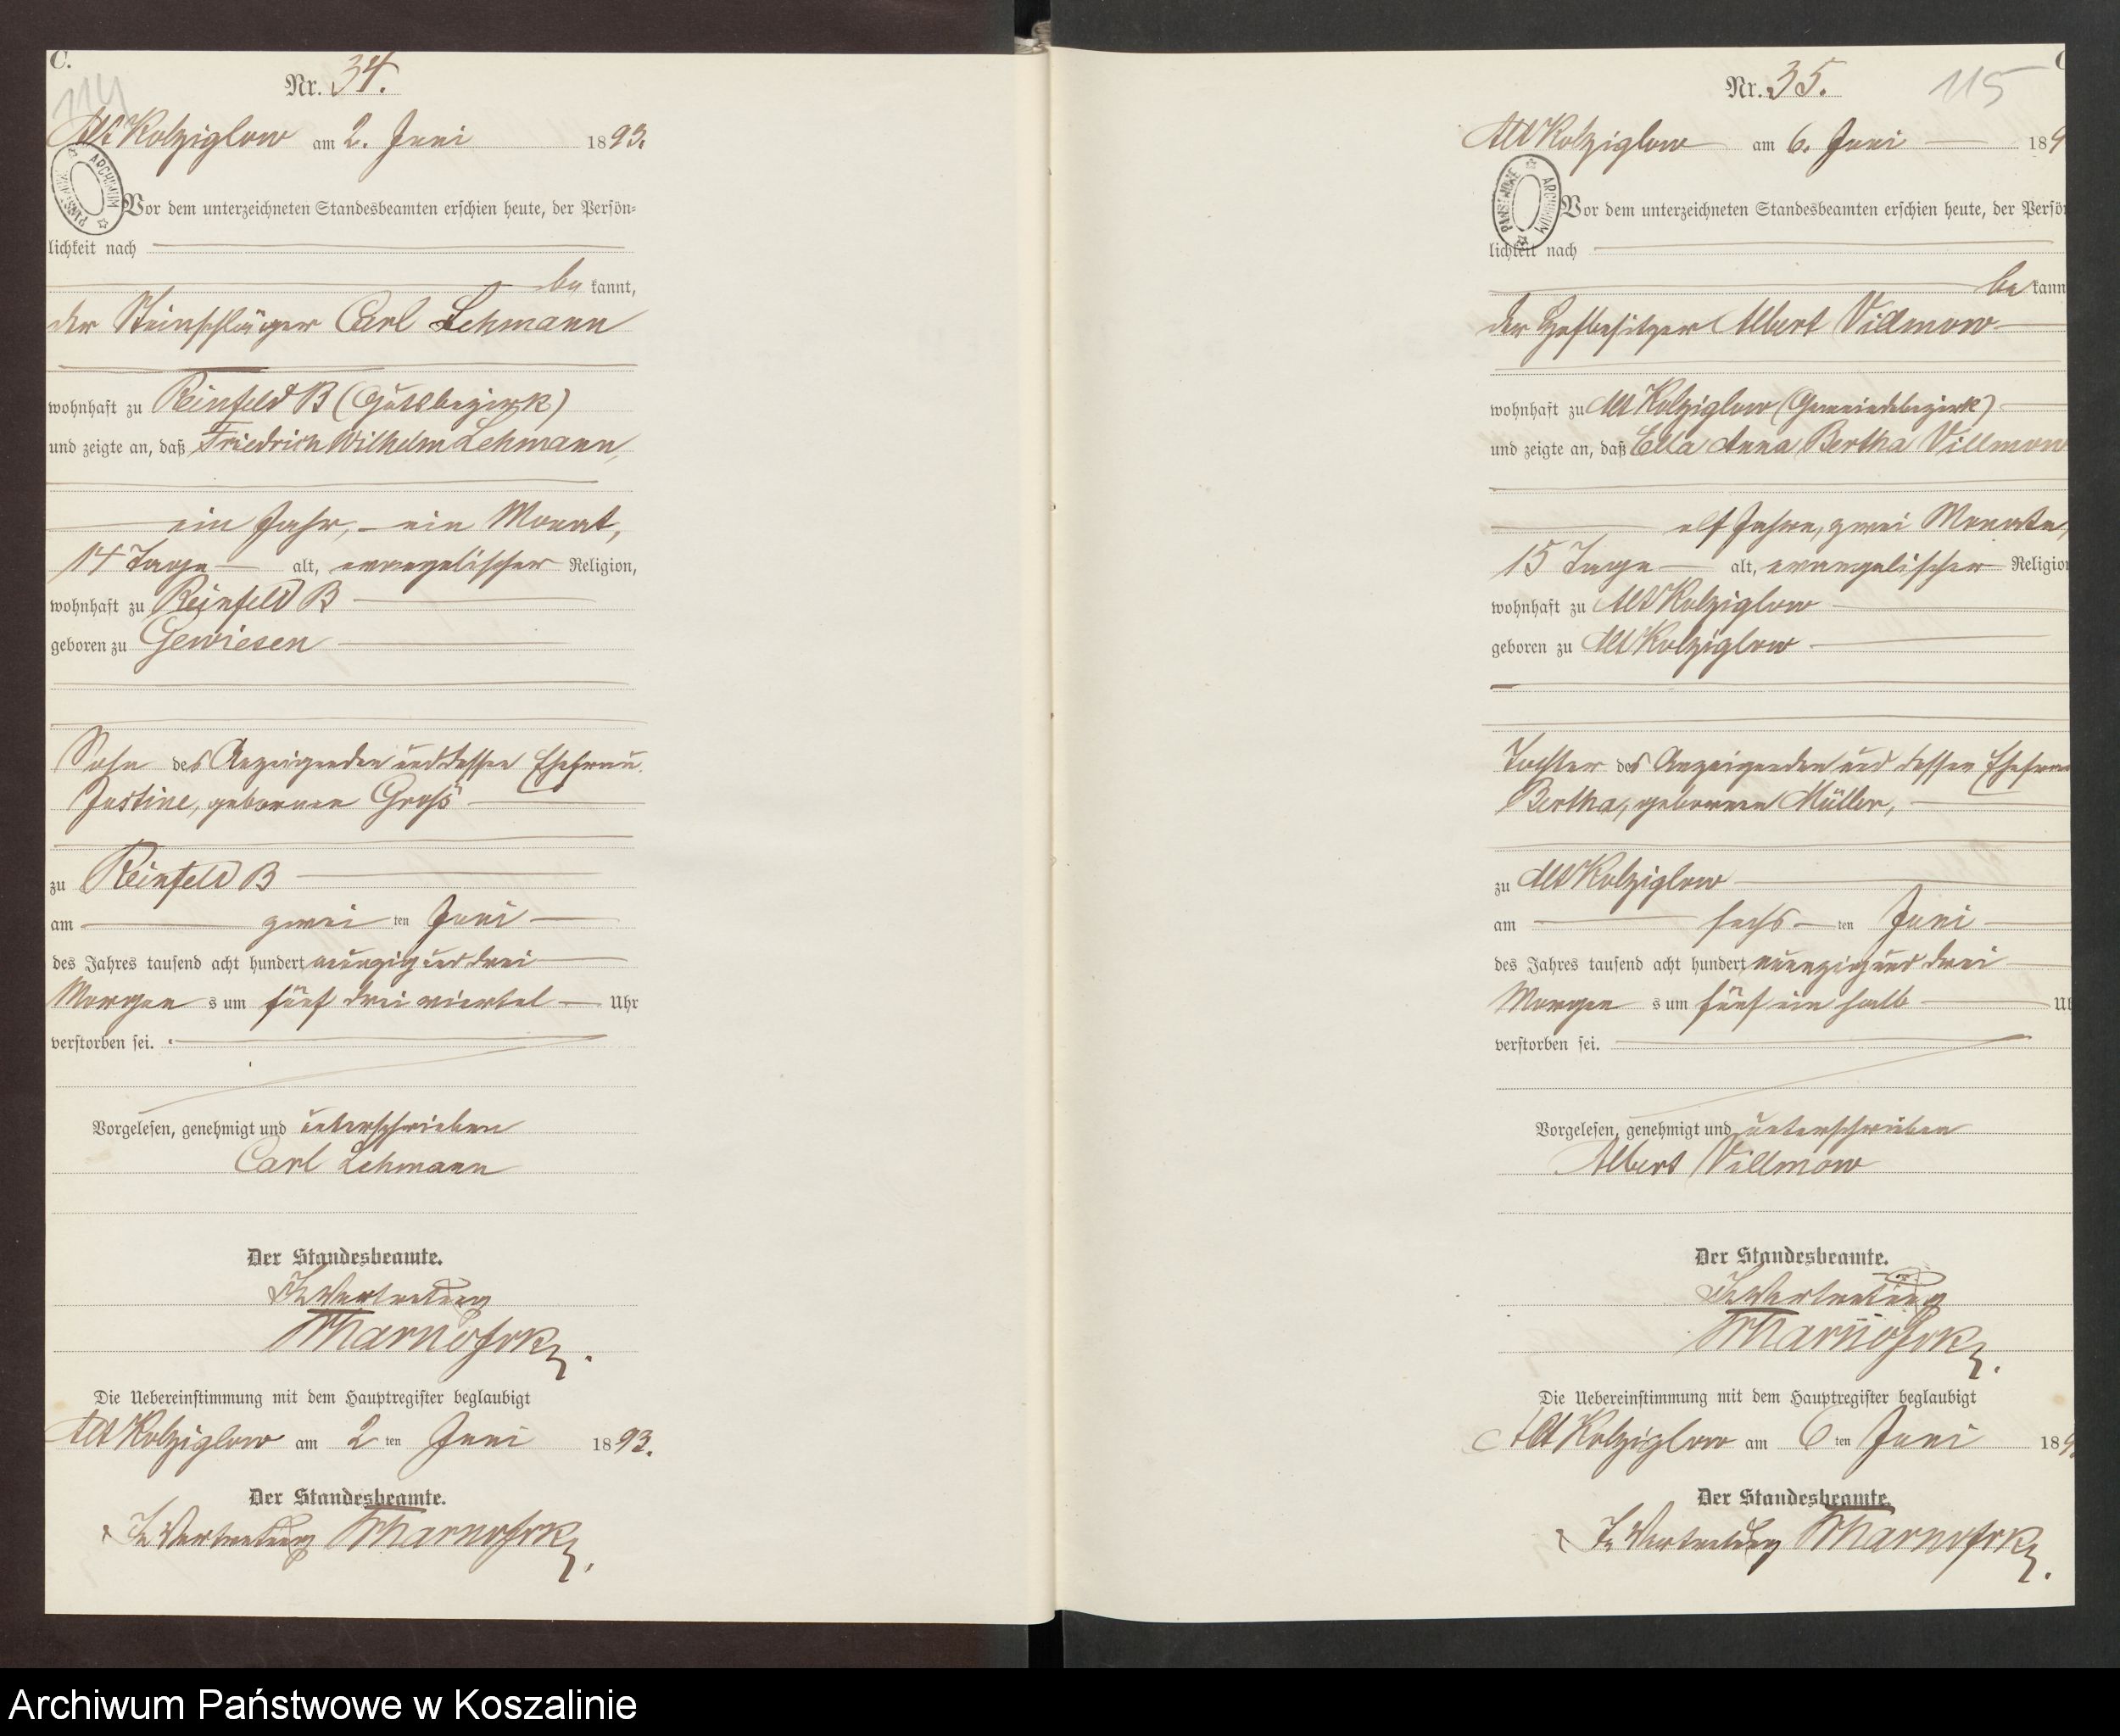 C.
114
Nr. 34.
Alt Kolziglow am 2. Juni 1893.
ARCHIWUM PAŃSTWOWE
Vor dem unterzeichneten Standesbeamten erschien heute, der Persön-
lichkeit nach
be kannt,
der Steinschläger Carl Lehmann
wohnhaft zu Reinfeld B (Gutsbezirk)
und zeigte an, daß Friedrich Wilhelm Lehmann,
ein Jahr, ein Monat,
14 Tage alt, evangelischer Religion,
wohnhaft zu Reinfeld B
geboren zu Gewiesen
Sohn des Anzeigenden und dessen Ehefrau
Justine, geborenen Groß
zu Reinfeld B
am zwei ten Juni
des Jahres tausend acht hundert neunzig und drei
Morgen s um fünf drei viertel Uhr
verstorben sei.
Vorgelesen, genehmigt und unterschrieben
Carl Lehmann
Der Standesbeamte.
In Vertretung
Die Uebereinstimmung mit dem Hauptregister beglaubigt
Alt Kolziglow am 2 ten Juni 1893.
Der Standesbeamte.
In Vertretung
C
Nr. 35.
115
Alt Kolziglow am 6. Juni 189
ARCHIWUM PAŃSTWOWE
Vor dem unterzeichneten Standesbeamten erschien heute, der Persö
lichkeit nach
be kann
der Hofbesitzer Albert Villmow
wohnhaft zu Alt Kolziglow (Gemeindebezirk)
und zeigte an, daß Ella Anna Bertha Villmow
elf Jahre, zwei Monate,
15 Tage alt, evangelischer Religio
wohnhaft zu Alt Kolziglow
geboren zu Alt Kolziglow
Tochter des Anzeigenden und dessen Ehefrau
Bertha, geborenen Müller,
zu Alt Kolziglow
am sechs ten Juni
des Jahres tausend acht hundert neunzig und drei
Morgen s um fünf ein halb Uh
verstorben sei.
Vorgelesen, genehmigt und unterschrieben
Albert Villmow
Der Standesbeamte.
In Vertretung
Die Uebereinstimmung mit dem Hauptregister beglaubigt
Alt Kolziglow am 6 ten Juni 189
Der Standesbeamte.
In Vertretung
Archiwum Państwowe w Koszalinie